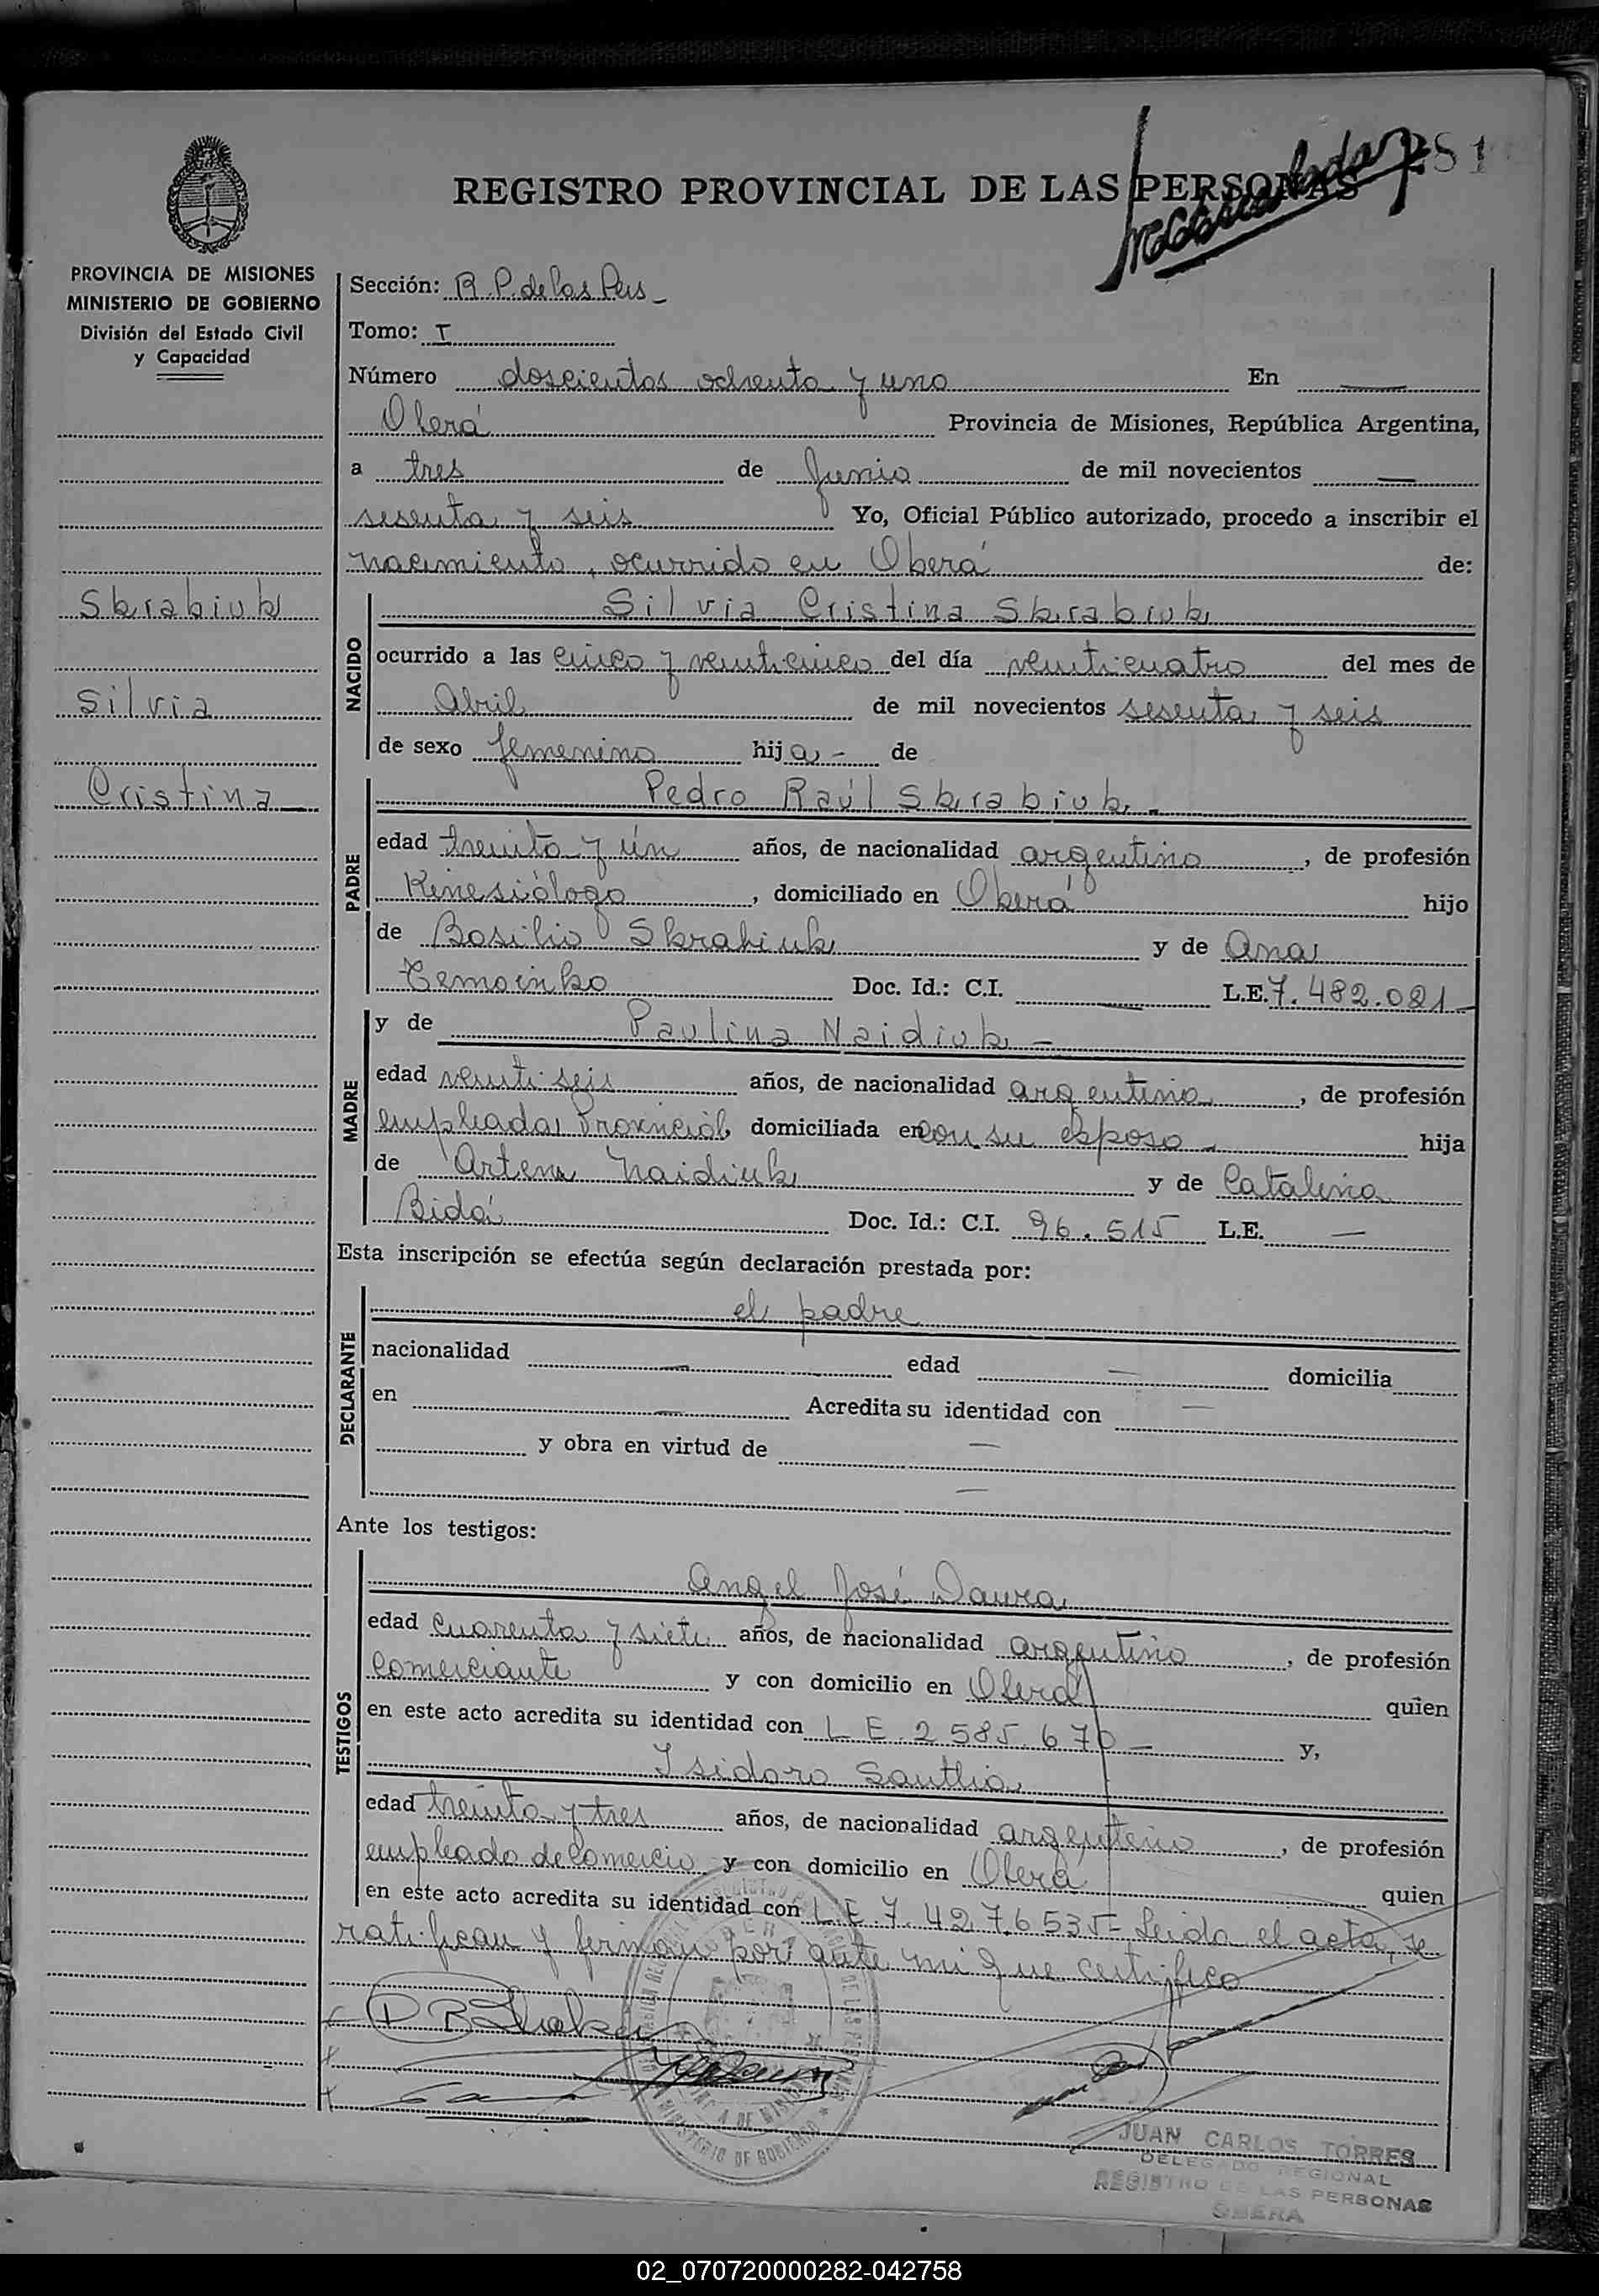 281
Matriculada
REGISTRO PROVINCIAL DE LAS PERSONAS
PROVINCIA DE MISIONES
MINISTERIO DE GOBIERNO
División del Estado Civil
y Capacidad
Skrabiuk
Silvia
Cristina —
Sección: R. P. de las Pers –
Tomo: I
Número doscientos ochenta y uno En —
Oberá Provincia de Misiones, República Argentina,
a tres de Junio de mil novecientos —
sesenta y seis Yo, Oficial Público autorizado, procedo a inscribir el
nacimiento, ocurrido en Oberá de:
NACIDO
Silvia Cristina Skrabiuk
ocurrido a las cinco y veinticinco del día veinticuatro del mes de
Abril de mil novecientos sesenta y seis
de sexo femenino hija – de
PADRE
Pedro Raúl Skrabiuk –
edad treinta y ún años, de nacionalidad argentino, de profesión
Kinesiólogo, domiciliado en Oberá hijo
de Basilio Skrabiuk y de Ana
Doc. Id.: C.I. — L.E. 7.482.021 –
MADRE
y de Paulina Naidiuk –
edad veintiseis años, de nacionalidad argentina, de profesión
empleada Provincial, domiciliada en con su esposo – hija
de Artem Naidiuk y de Catalina
Bidá Doc. Id.: C.I. 96.515 L.E. —
Esta inscripción se efectúa según declaración prestada por:
DECLARANTE
el padre
nacionalidad — edad — domicilia
en — Acredita su identidad con —
y obra en virtud de —
—
Ante los testigos:
TESTIGOS
Angel José Daura
edad cuarenta y siete años, de nacionalidad argentino, de profesión
Comerciante y con domicilio en Oberá quien
en este acto acredita su identidad con L E. 2.585.670 – y,
Isidoro
edad treinta y tres años, de nacionalidad argentino, de profesión
empleado de Comercio y con domicilio en Oberá quien
en este acto acredita su identidad con L.E. 7.427.653 = Leida el acta, se
ratifican y firman por ante mi que certifico
JUAN CARLOS TORRES
DELEGADO REGIONAL
REGISTRO DE LAS PERSONAS
OBERA
MINISTERIO DE GOBIERNO
02_070720000282-042758